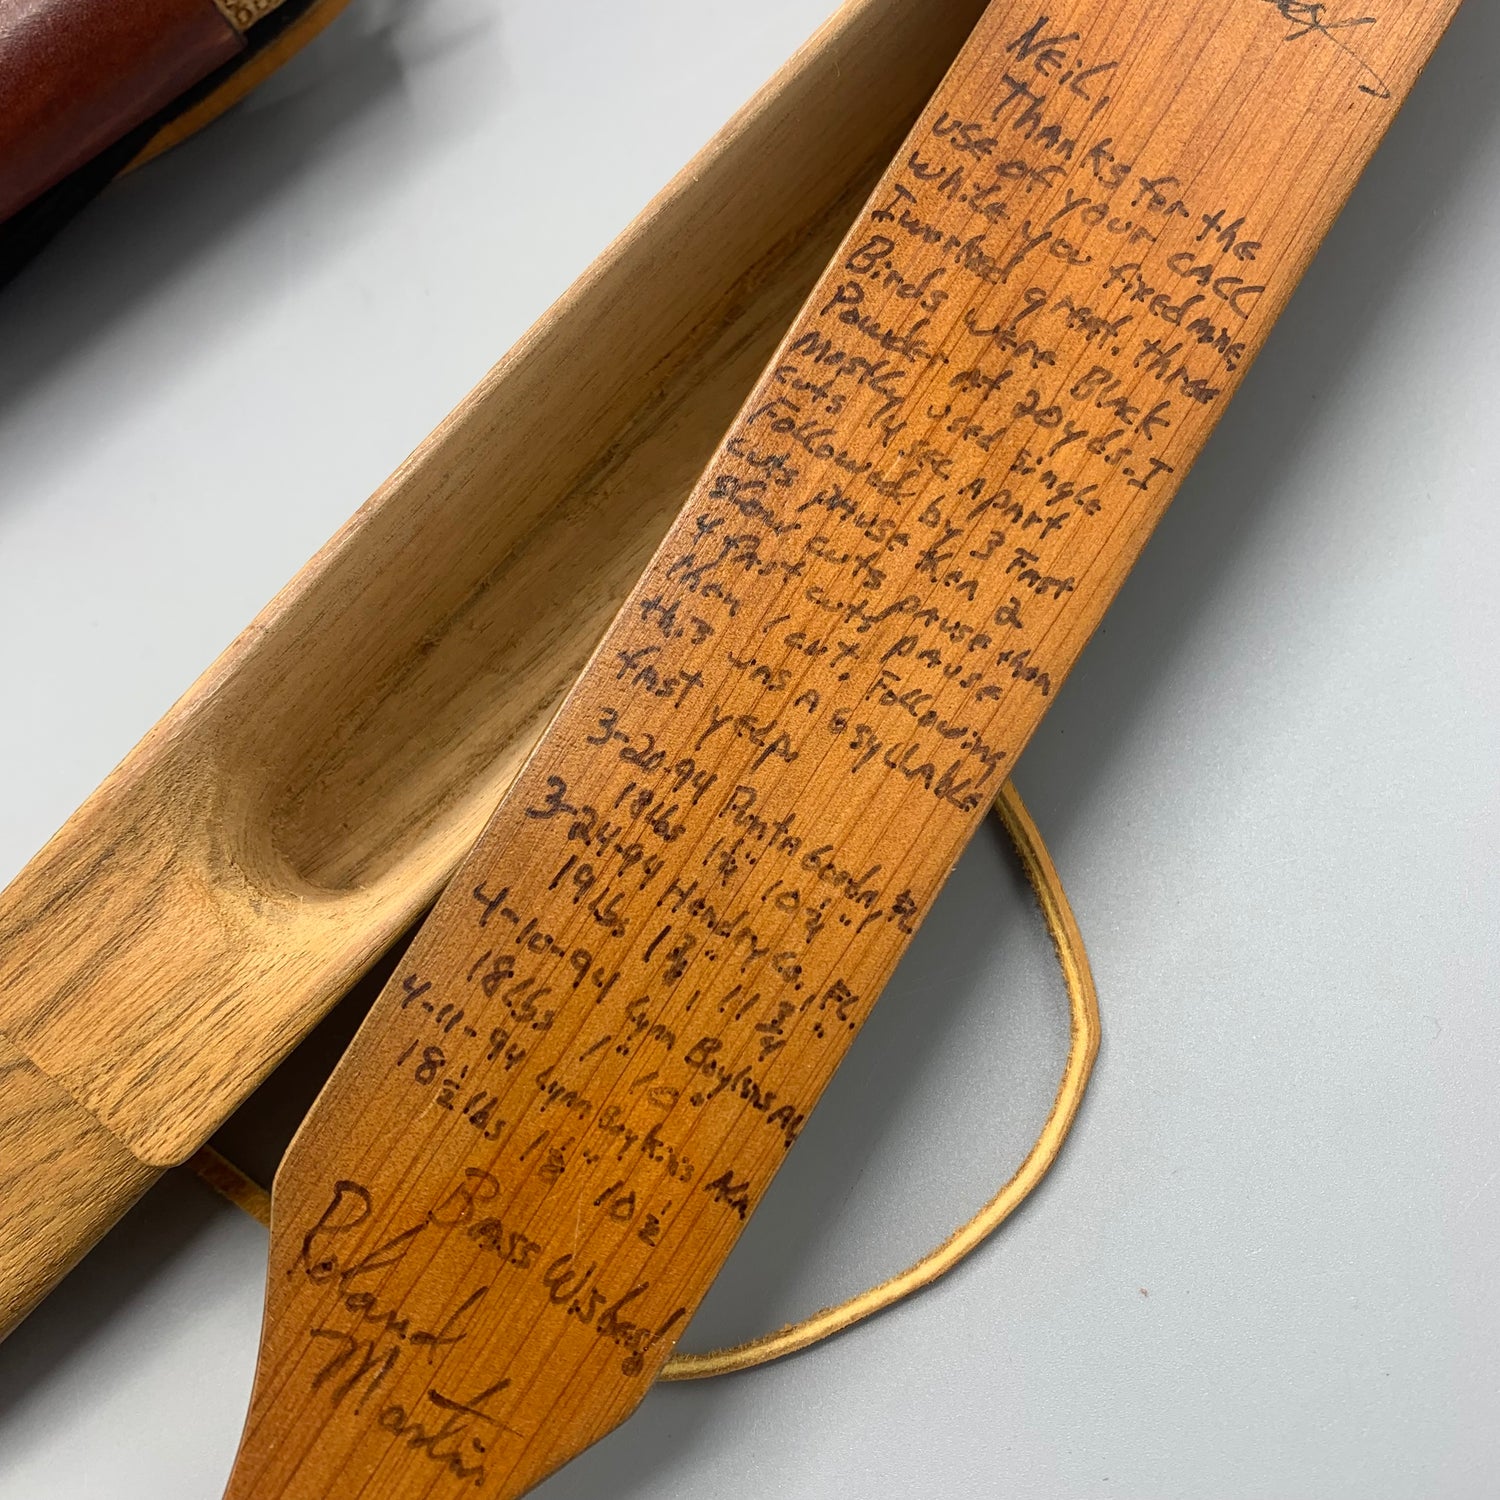 NEIL,
Thanks for the
use of your CALL
while you fixed mine.
It worked great. three
Birds were Black
Powder at 20 yds. I
mostly used single
cuts 1/4 sec apart
Followed by 3 Fast
cuts pause then 2
slow cuts pause then
4 Fast cuts pause
then 1 cut. Following
this was A 6 syllable
fast yelps
3-20-94 Punta Gorda, FL
18 lbs 1 1/4" 10 1/4"
3-24-94 Hendry Co., FL.
19 lbs 1 3/8", 11 3/4"
4-10-94 Lynn Boykins AL
18 lbs 1" 10"
4-11-94 Lynn Boykin's Ala
18 1/2 lbs 1 1/8" 10 1/2
Bass Wishes!
Roland
Martin